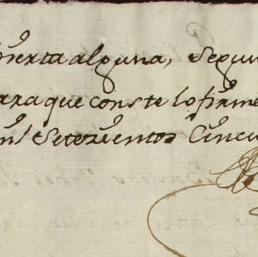 alguna, Segun
para que conste lo firme
mil Setecientos Cincu